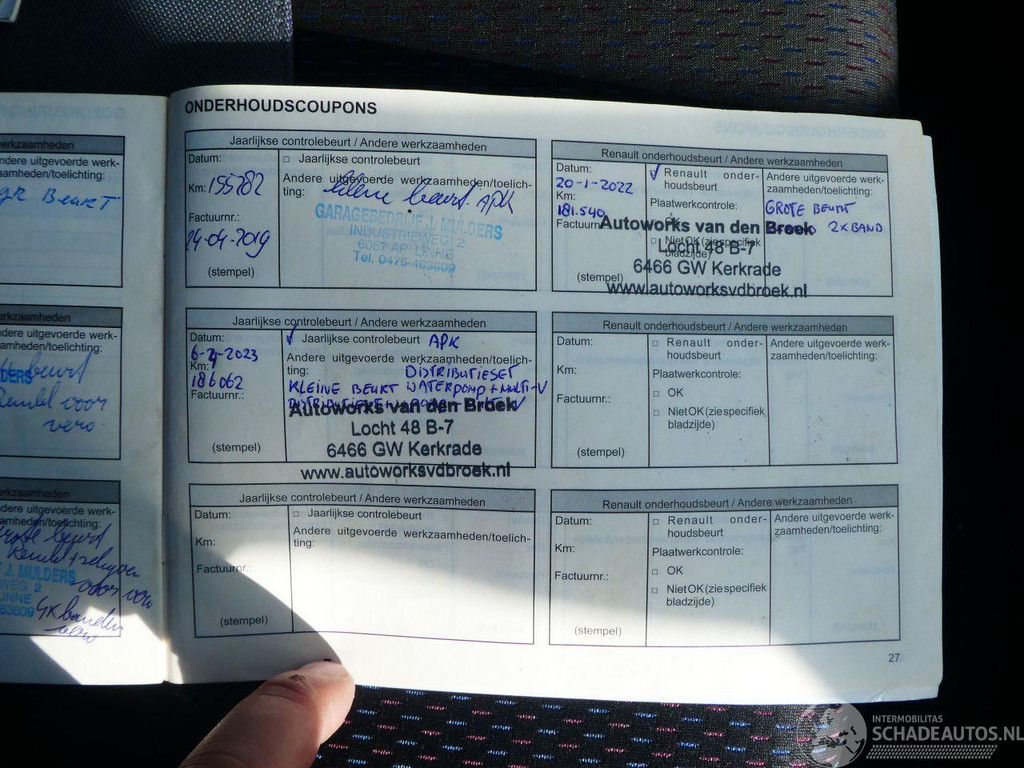 werkzaamheden
ndere uitgevoerde werk-
aamheden/toelichting:
BEURT
werkzaamheden
ndere uitgevoerde werk-
aamheden/toelichting:
beurt
voor
vero
werkzaamheden
ndere uitgevoerde werk-
amheden/toelichting:
grote beurt
J. MULDERS
WEG 2
LINNE
63609 4x banden
ONDERHOUDSCOUPONS
Jaarlijkse controlebeurt / Andere werkzaamheden
Datum:
□ Jaarlijkse controlebeurt
Andere uitgevoerde werkzaamheden/toelich-
ting: kleine beurt APK
Km: 155782
Factuurnr.:
24-04-2019
(stempel)
GARAGEBEDRIJF J. MULDERS
INDUSTRIEWEG 2
6067 AP LINNE
Tel. 0475-463609
Renault onderhoudsbeurt / Andere werkzaamheden
Datum:
20-1-2022
Km:
181.540
Factuurnr
(stempel)
Renault onder-
houdsbeurt
Plaatwerkcontrole:
□ OK
□ Niet OK (zie specifiek
bladzijde)
Andere uitgevoerde werk-
zaamheden/toelichting:
GROTE BEURT
2X BAND
Autoworks van den Broek
Locht 48 B-7
6466 GW Kerkrade
www.autoworksvdbroek.nl
Jaarlijkse controlebeurt / Andere werkzaamheden
Datum:
6-2-2023
Km:
186062
Factuurnr.:
(stempel)
Jaarlijkse controlebeurt APK
Andere uitgevoerde werkzaamheden/toelich-
ting: DISTRIBUTIESET
KLEINE BEURT WATERPOMP + MULTI-V
Autoworks van den Broek
Locht 48 B-7
6466 GW Kerkrade
www.autoworksvdbroek.nl
Renault onderhoudsbeurt / Andere werkzaamheden
Datum:
Km:
Factuurnr.:
(stempel)
□ Renault onder-
houdsbeurt
Plaatwerkcontrole:
□ OK
□ Niet OK (zie specifiek
bladzijde)
Andere uitgevoerde werk-
zaamheden/toelichting:
Jaarlijkse controlebeurt / Andere werkzaamheden
Datum:
Km:
Factuurnr.:
(stempel)
□ Jaarlijkse controlebeurt
Andere uitgevoerde werkzaamheden/toelich-
ting:
Renault onderhoudsbeurt / Andere werkzaamheden
Datum:
Km:
Factuurnr.:
(stempel)
□ Renault onder-
houdsbeurt
Plaatwerkcontrole:
□ OK
□ Niet OK (zie specifiek
bladzijde)
Andere uitgevoerde werk-
zaamheden/toelichting:
27
INTERMOBILITAS
SCHADEAUTOS.NL